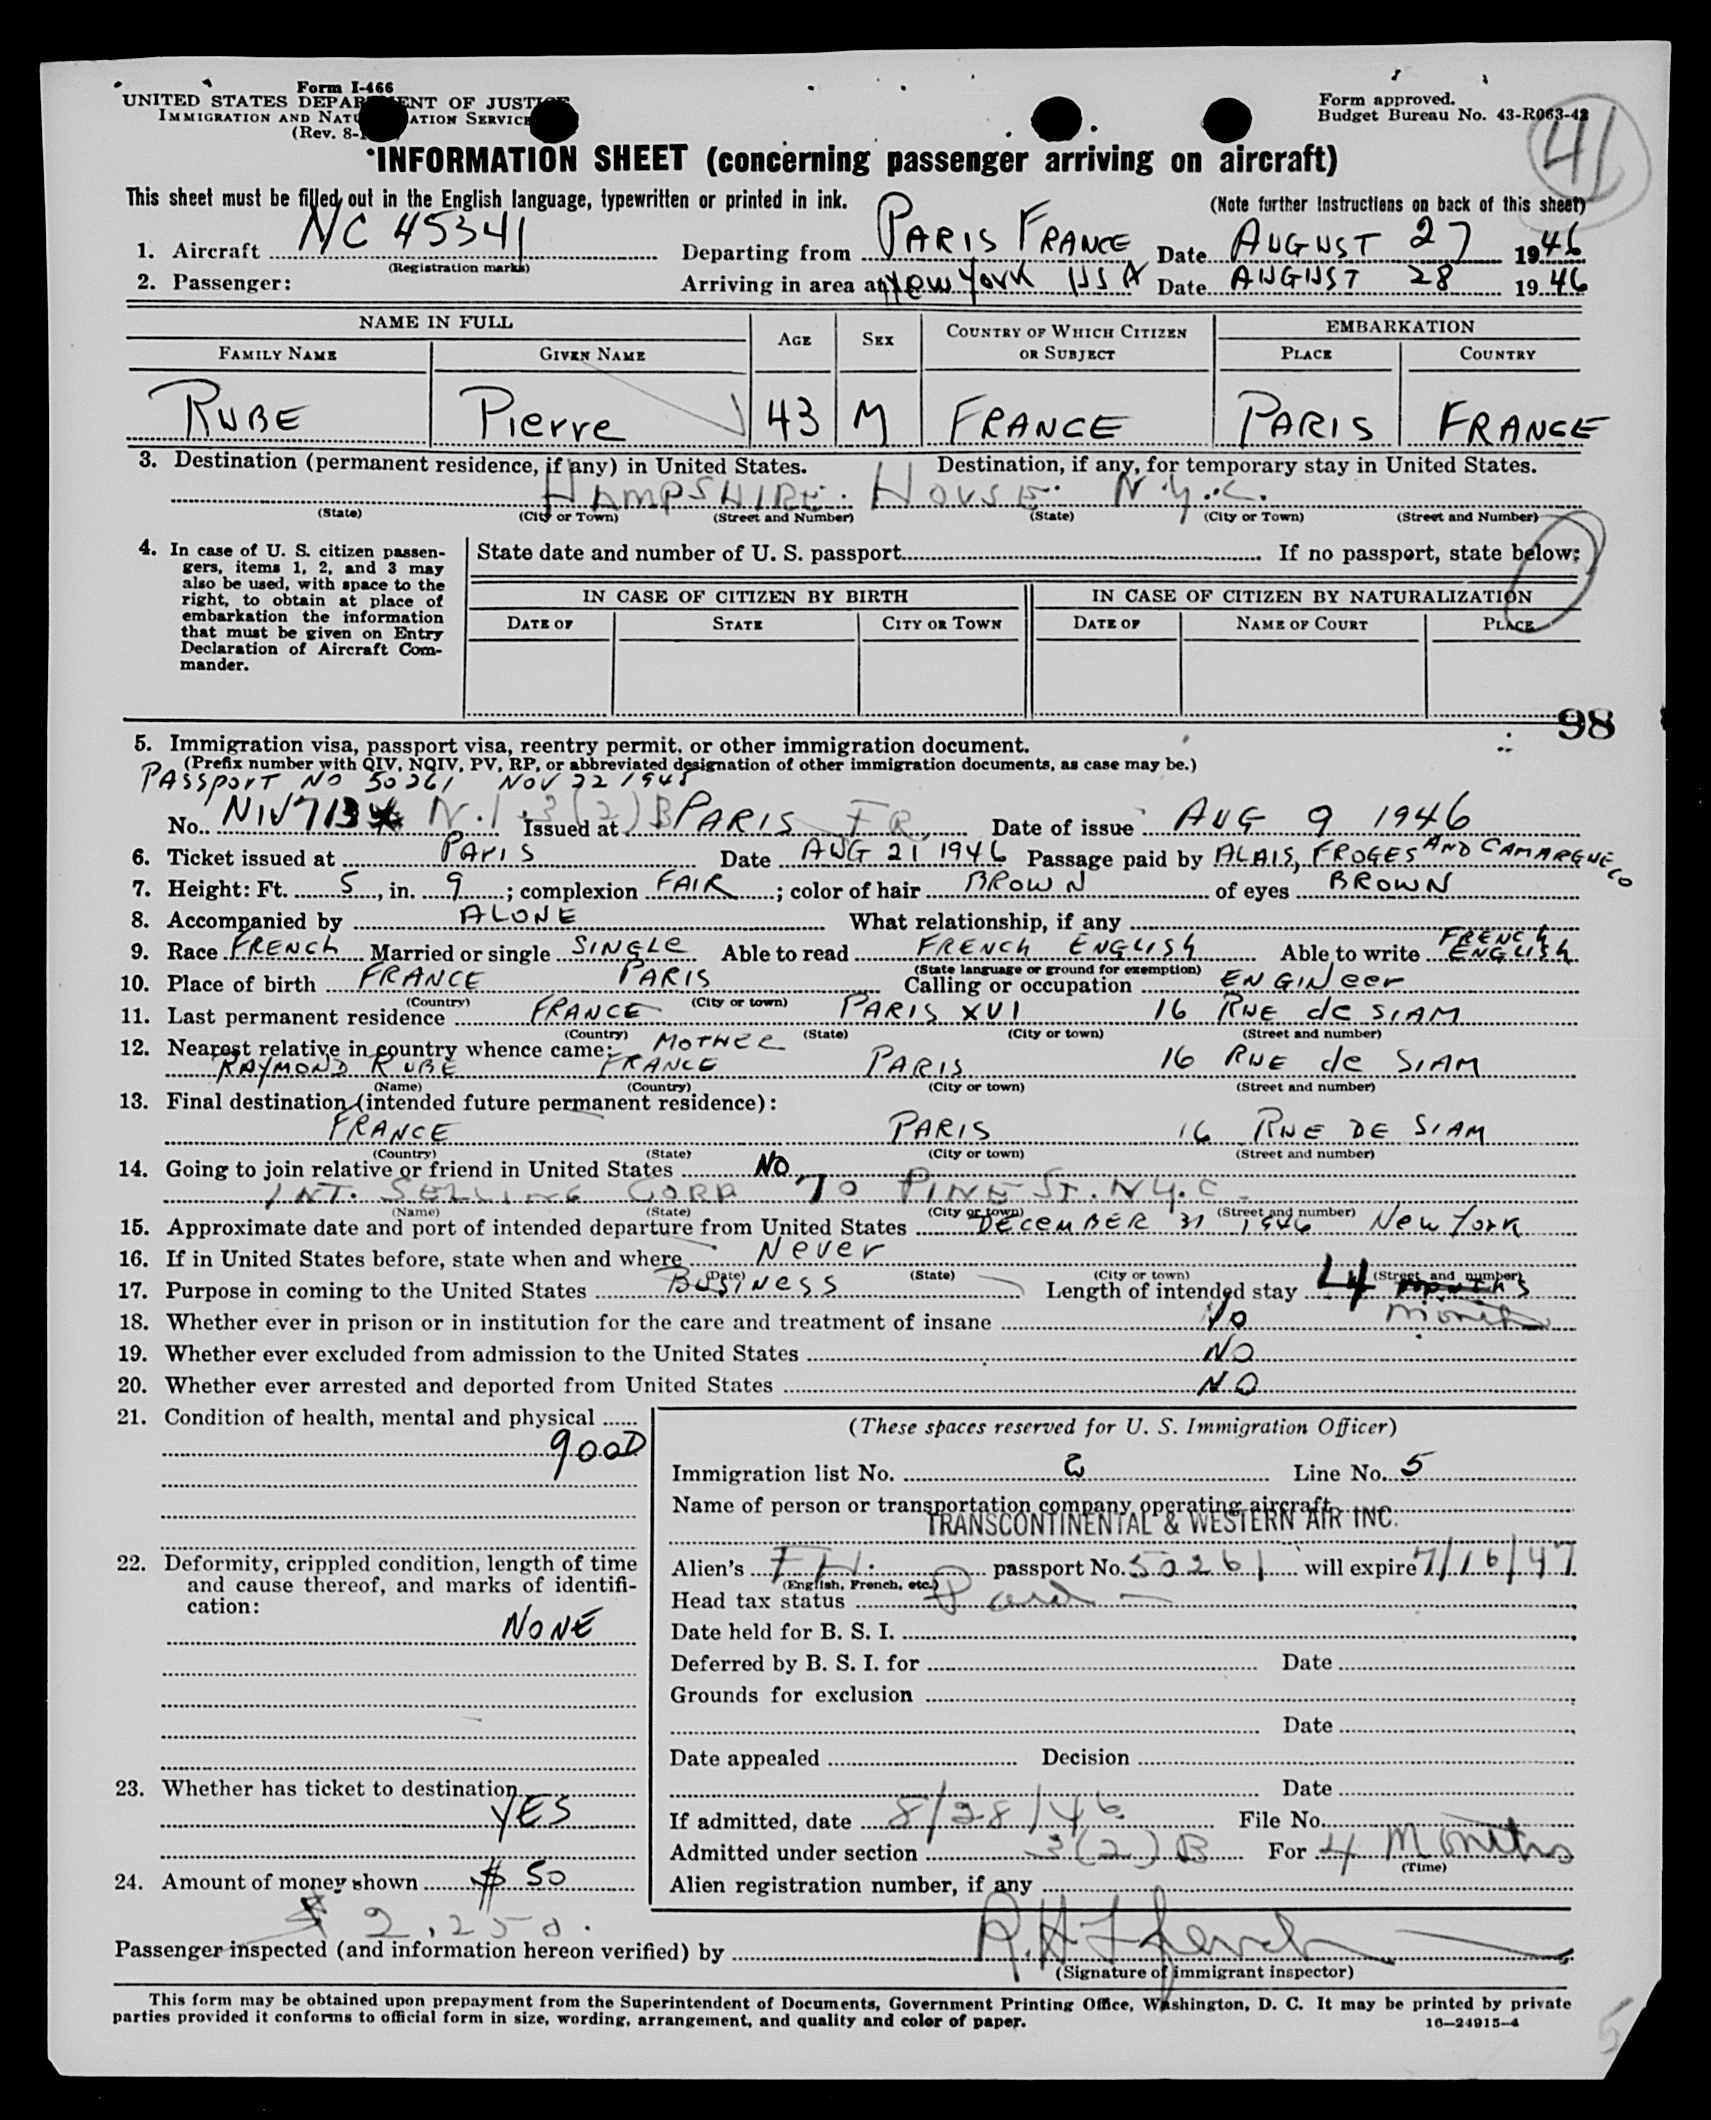 Form I-466
UNITED STATES DEPARTMENT OF JUSTICE
IMMIGRATION AND NATURALIZATION SERVICE
(Rev. 8-
Form approved.
Budget Bureau No. 43-R063-42
41
INFORMATION SHEET (concerning passenger arriving on aircraft)
This sheet must be filled out in the English language, typewritten or printed in ink.
(Note further instructions on back of this sheet)
1. Aircraft NC 45341 Departing from PARIS FRANCE Date AUGUST 27 1946
(Registration marks)
2. Passenger: Arriving in area at New York USA Date AUGUST 28 1946
NAME IN FULL AGE SEX COUNTRY OF WHICH CITIZEN OR SUBJECT EMBARKATION
FAMILY NAME GIVEN NAME PLACE COUNTRY
RUBE Pierre 43 M FRANCE PARIS FRANCE
3. Destination (permanent residence, if any) in United States. Destination, if any, for temporary stay in United States.
HAMPSHIRE HOUSE N.Y.C.
(State) (City or Town) (Street and Number) (State) (City or Town) (Street and Number)
4. In case of U. S. citizen passengers, items 1, 2, and 3 may also be used, with space to the right, to obtain at place of embarkation the information that must be given on Entry Declaration of Aircraft Commander.
State date and number of U. S. passport If no passport, state below:
IN CASE OF CITIZEN BY BIRTH IN CASE OF CITIZEN BY NATURALIZATION
DATE OF STATE CITY OR TOWN DATE OF NAME OF COURT PLACE
98
5. Immigration visa, passport visa, reentry permit, or other immigration document.
(Prefix number with QIV, NQIV, PV, RP, or abbreviated designation of other immigration documents, as case may be.)
PASSPORT NO 50261 NOV 22 1945
No. NIV713 3(2)B Issued at PARIS FR. Date of issue AUG 9 1946
6. Ticket issued at PARIS Date AUG 21 1946 Passage paid by ALAIS, FROGES AND CAMARGUE CO
7. Height: Ft. 5, in. 9; complexion FAIR; color of hair BROWN of eyes BROWN
8. Accompanied by ALONE What relationship, if any
9. Race FRENCH Married or single SINGLE Able to read FRENCH ENGLISH Able to write FRENCH ENGLISH
(State language or ground for exemption)
10. Place of birth FRANCE PARIS Calling or occupation ENGINEER
(Country) (City or town)
11. Last permanent residence FRANCE PARIS XVI 16 RUE de SIAM
(Country) (State) (City or town) (Street and number)
12. Nearest relative in country whence came: MOTHER
RAYMOND RUBE FRANCE PARIS 16 RUE de SIAM
(Name) (Country) (City or town) (Street and number)
13. Final destination (intended future permanent residence):
FRANCE PARIS 16 RUE DE SIAM
(Country) (State) (City or town) (Street and number)
14. Going to join relative or friend in United States NO
INT. SELLING CORP 70 PINE ST. N.Y.C.
(Name) (State) (City or town) (Street and number)
15. Approximate date and port of intended departure from United States DECEMBER 31 1946 New York
16. If in United States before, state when and where Never
(Date) (State) (City or town) (Street and number)
17. Purpose in coming to the United States BUSINESS Length of intended stay 4 months
18. Whether ever in prison or in institution for the care and treatment of insane NO
19. Whether ever excluded from admission to the United States NO
20. Whether ever arrested and deported from United States NO
21. Condition of health, mental and physical
gooD
22. Deformity, crippled condition, length of time and cause thereof, and marks of identification:
NONE
23. Whether has ticket to destination
YES
24. Amount of money shown $ 50
$ 2,250.
(These spaces reserved for U. S. Immigration Officer)
Immigration list No. 2 Line No. 5
Name of person or transportation company operating aircraft
TRANSCONTINENTAL & WESTERN AIR INC.
Alien's passport No. 50261 will expire 7/16/47
(English, French, etc.)
Head tax status Paid
Date held for B. S. I.
Deferred by B. S. I. for Date
Grounds for exclusion
Date
Date appealed Decision
Date
If admitted, date 8/28/46 File No.
Admitted under section 3(2)B For 4 Months
(Time)
Alien registration number, if any
Passenger inspected (and information hereon verified) by
(Signature of immigrant inspector)
This form may be obtained upon prepayment from the Superintendent of Documents, Government Printing Office, Washington, D. C. It may be printed by private
parties provided it conforms to official form in size, wording, arrangement, and quality and color of paper.
16—24915-4